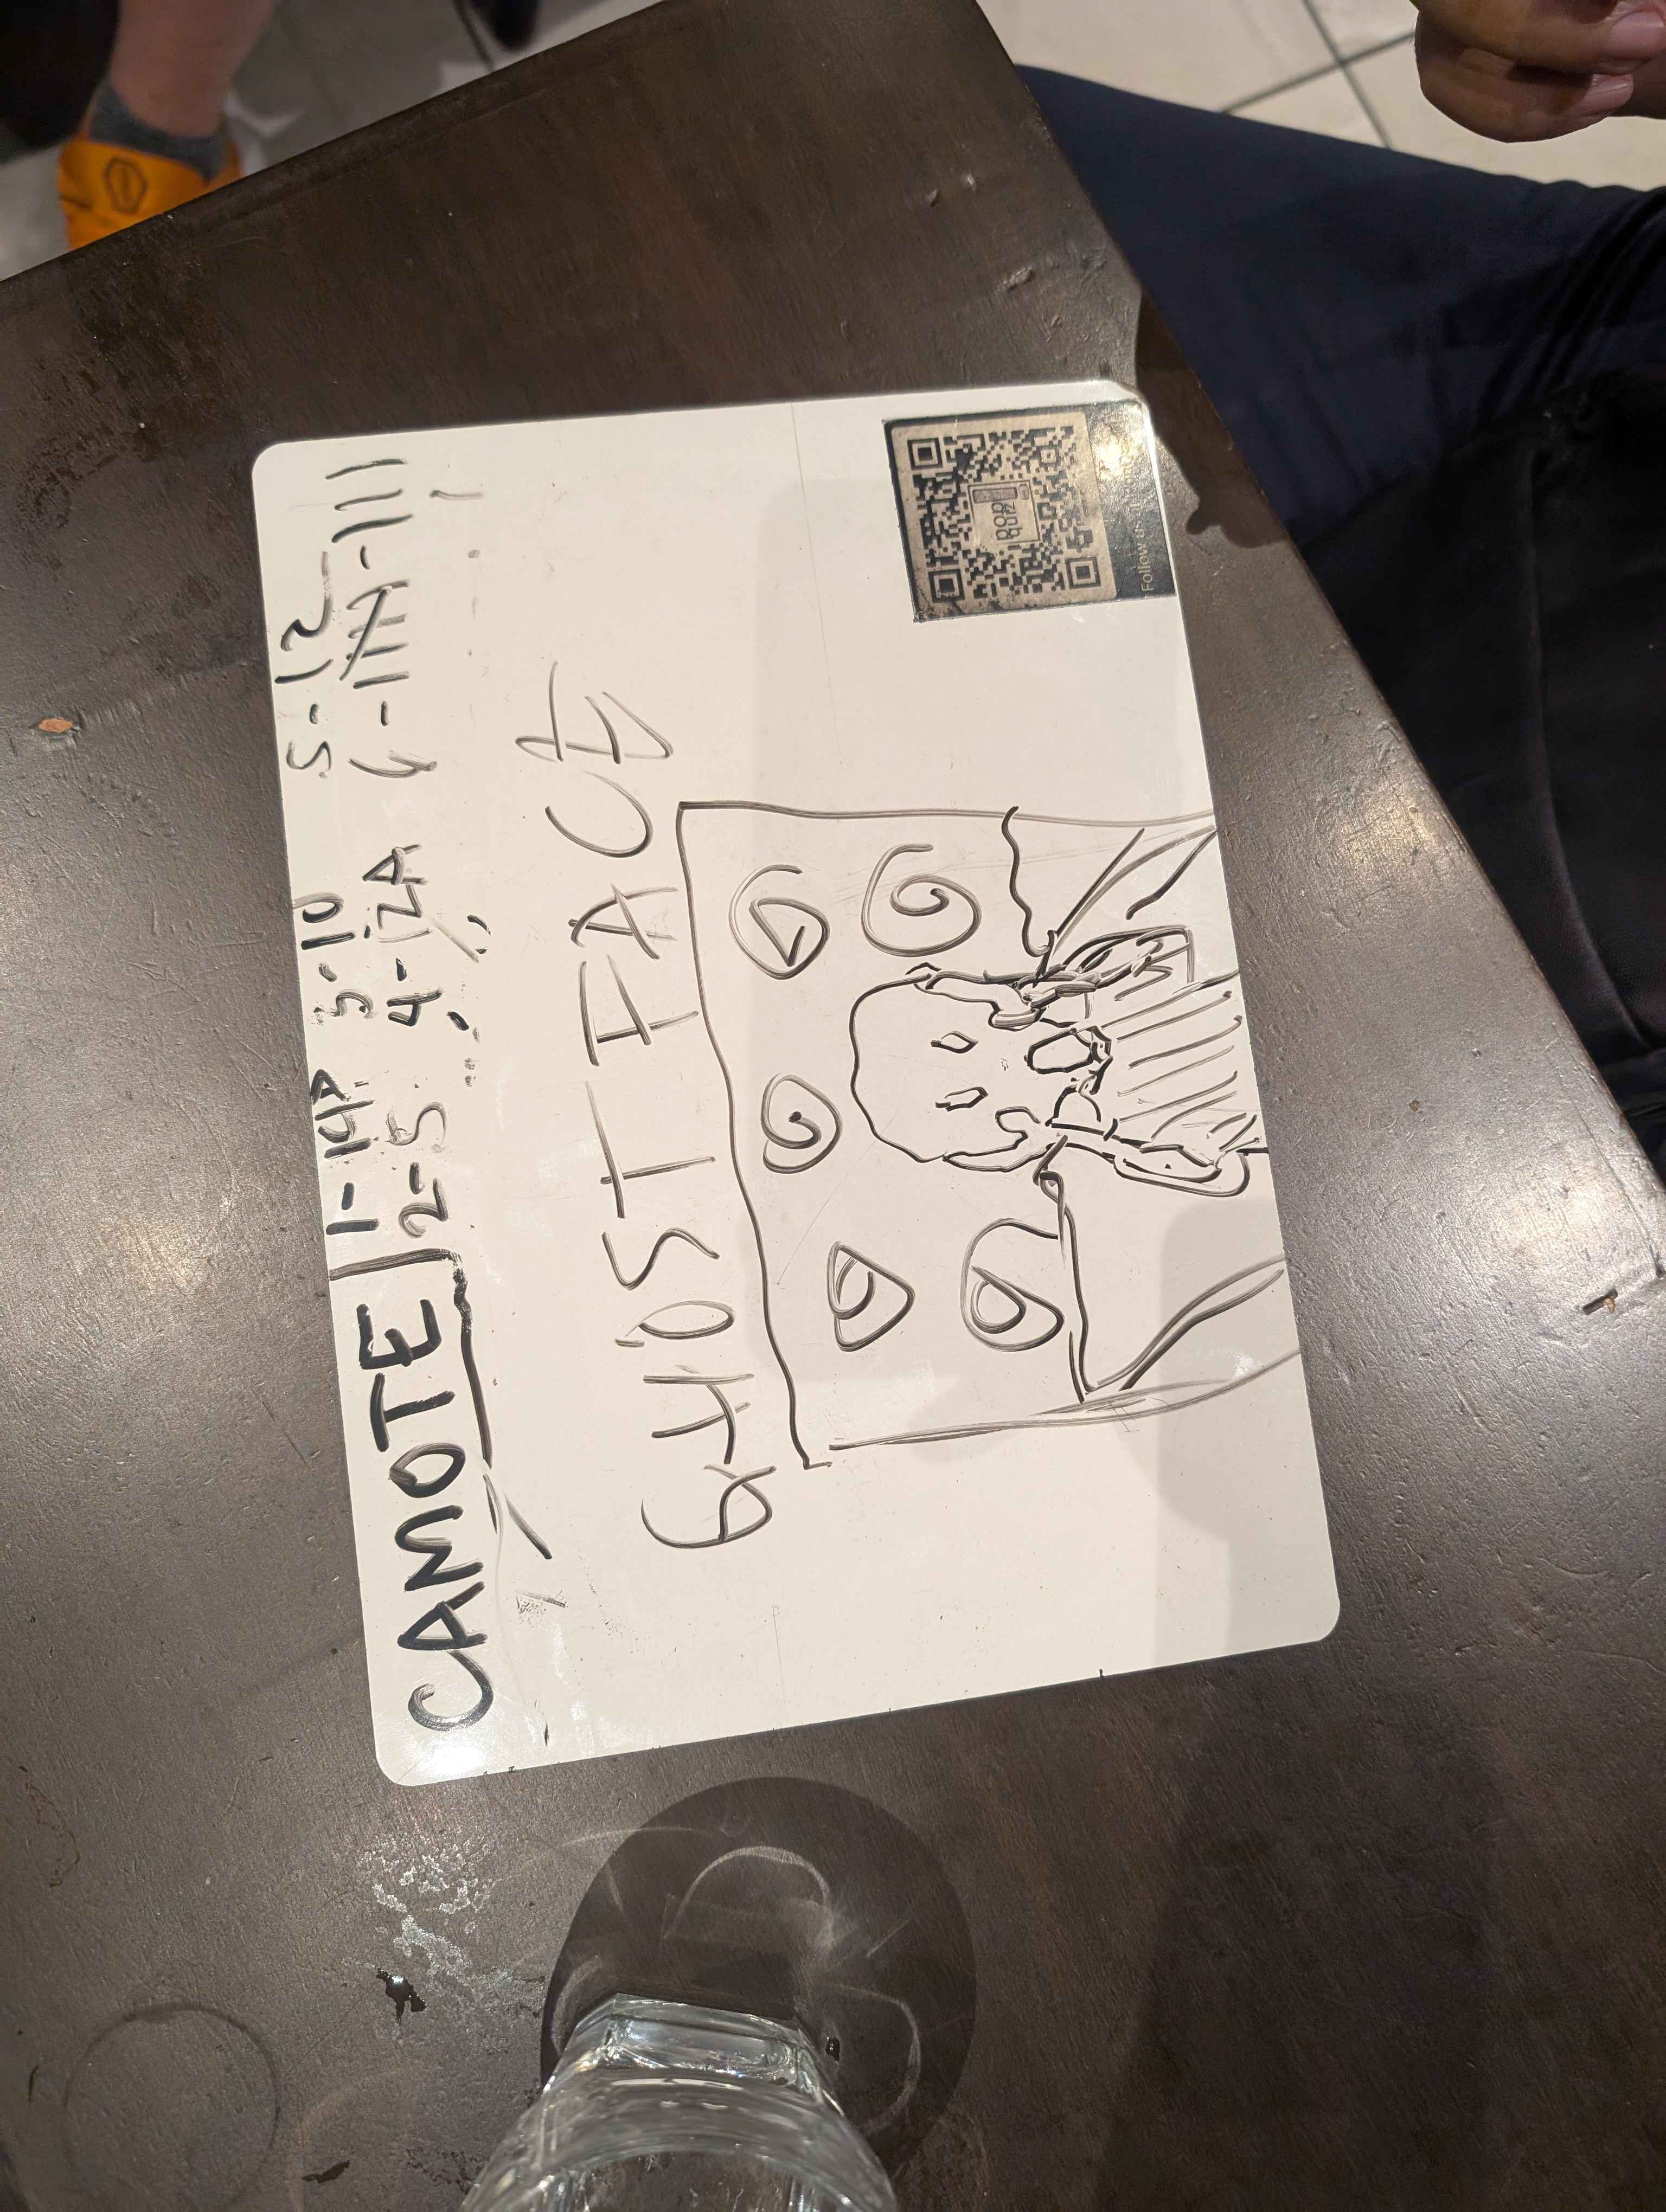 CAMOTE 1-14P 3-10 5-12
2-5 4-12A 6-IIII-III
GHOST FACE
Follow us